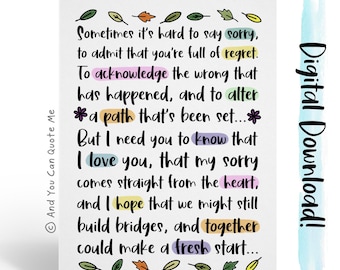 Sometimes it's hard to say sorry,
to admit that you're full of regret.
To acknowledge the wrong that
has happened, and to alter
a path that's been set...
But I need you to know that
I love you, that my sorry
comes straight from the heart,
and I hope that we might still
build bridges, and together
could make a fresh start...
© And You Can Quote Me
Digital Download!